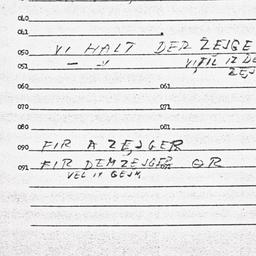 010
011
050 VI HALT DER ZEJGE
051 — " — VIFIL IZ DE
ZEJ
060 061
070 071
080 081
090 FIR A ZEJGER
091 FIR DEM ZEJGER OR
VEL IX GEJN